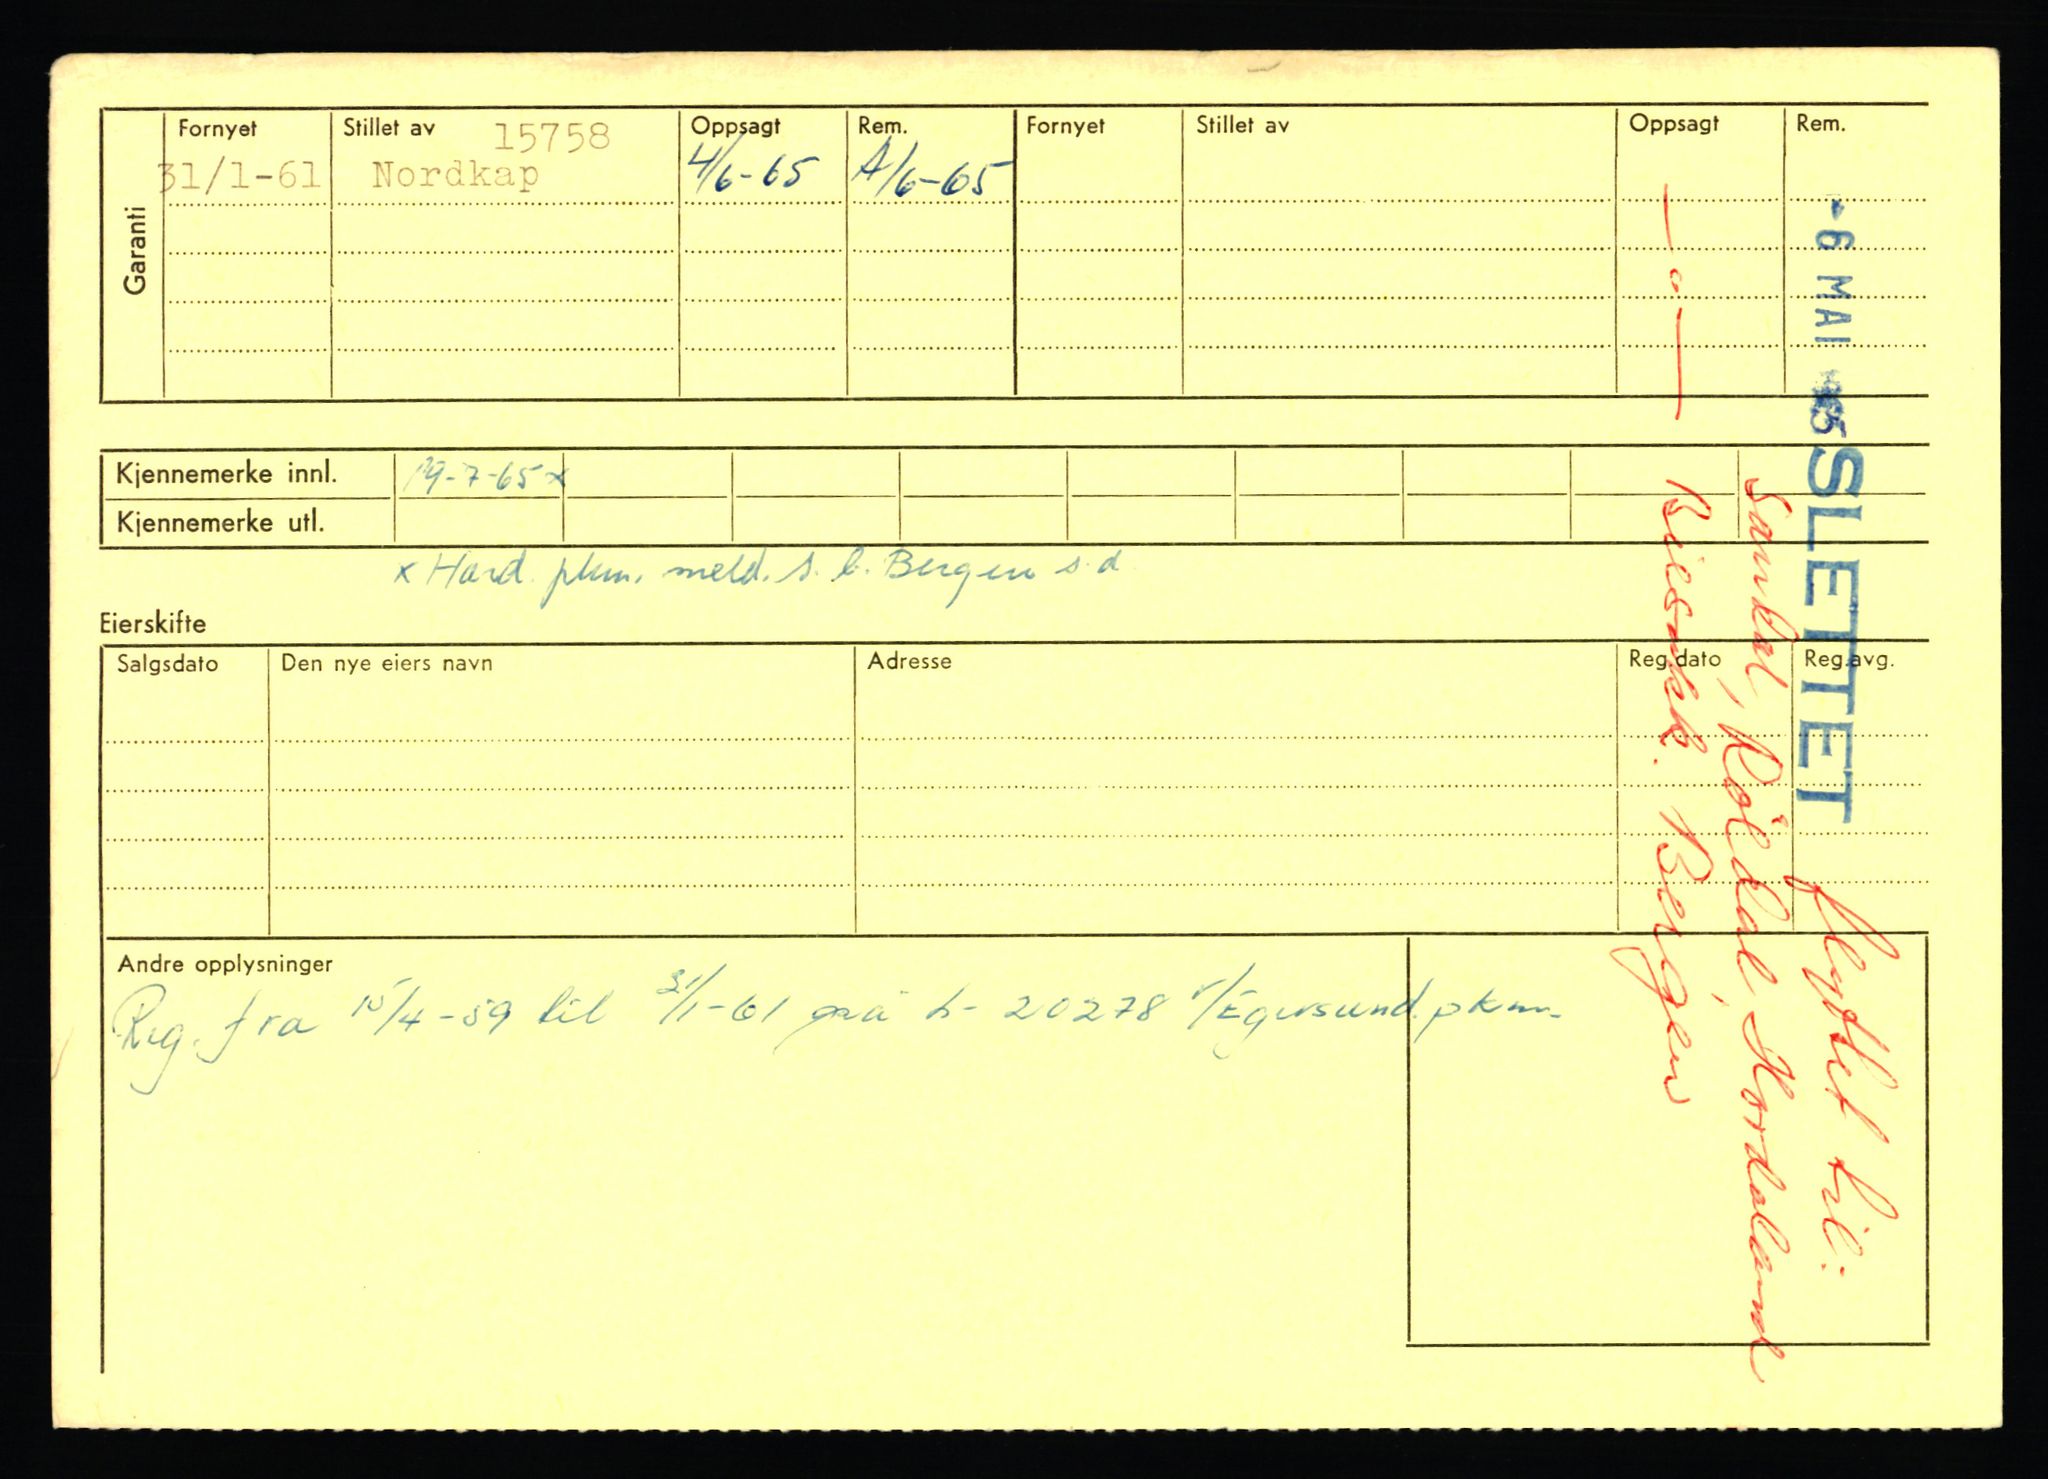 Garanti
Fornyet Stillet av 15758 Oppsagt Rem. Fornyet Stillet av Oppsagt Rem.
31/1-61 Nordkap 4/6-65 /6-65
Kjennemerke innl. 19-7-65 x
Kjennemerke utl.
x Hord. pkm. meld. s. b. Bergen s.d.
Eierskifte
Salgsdato Den nye eiers navn Adresse Reg.dato Reg.avg.
Andre opplysninger
Reg. fra 15/4-59 til 31/1-61 på L-20278 v/Egersund pkm.
-6 MAI 1965 SLETTET
flyttet til:
Samdal, Röldal, Hordaland
Bergen